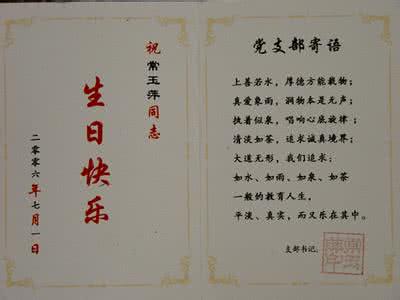 祝常玉萍同志
生日快乐
二零零六年七月一日
党支部寄语
上善若水，厚德方能载物；
真爱象雨，润物本是无声；
执着似泉，唱响心底旋律；
清淡如茶，追求诚真境界；
大道无形，我们追求：
如水、如雨、如泉、如茶
一般的教育人生，
平淡、真实，而又乐在其中。
支部书记：